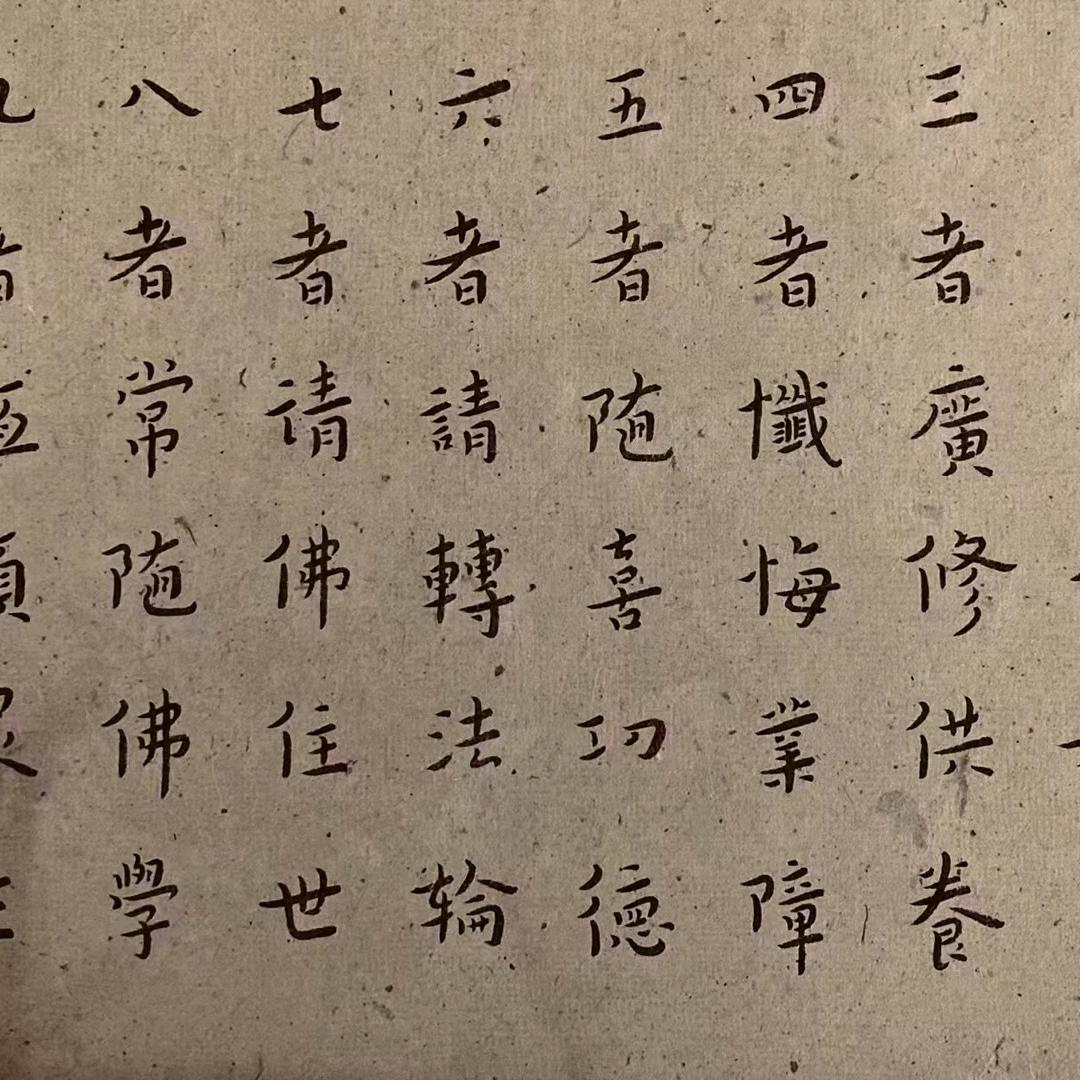 三者廣修供養
四者懺悔業障
五者随喜功德
六者請轉法輪
七者请佛住世
八者常随佛學
九者恒順眾生